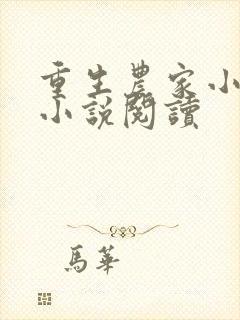 重生農家小
小說閱讀
馬華